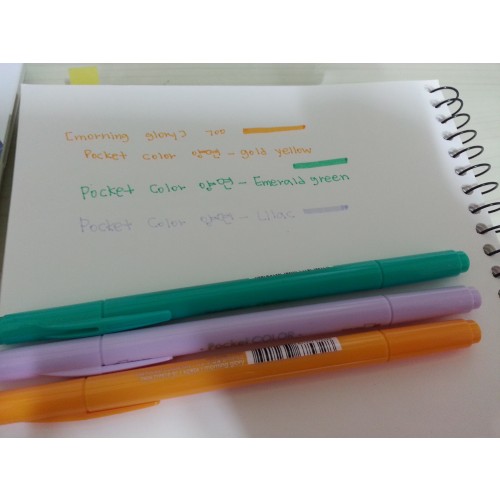 [morning glory] 700
Pocket color 양면 - gold yellow
Pocket color 양면 - Emerald green
Pocket color 양면 - Lilac
Pocket COLOR